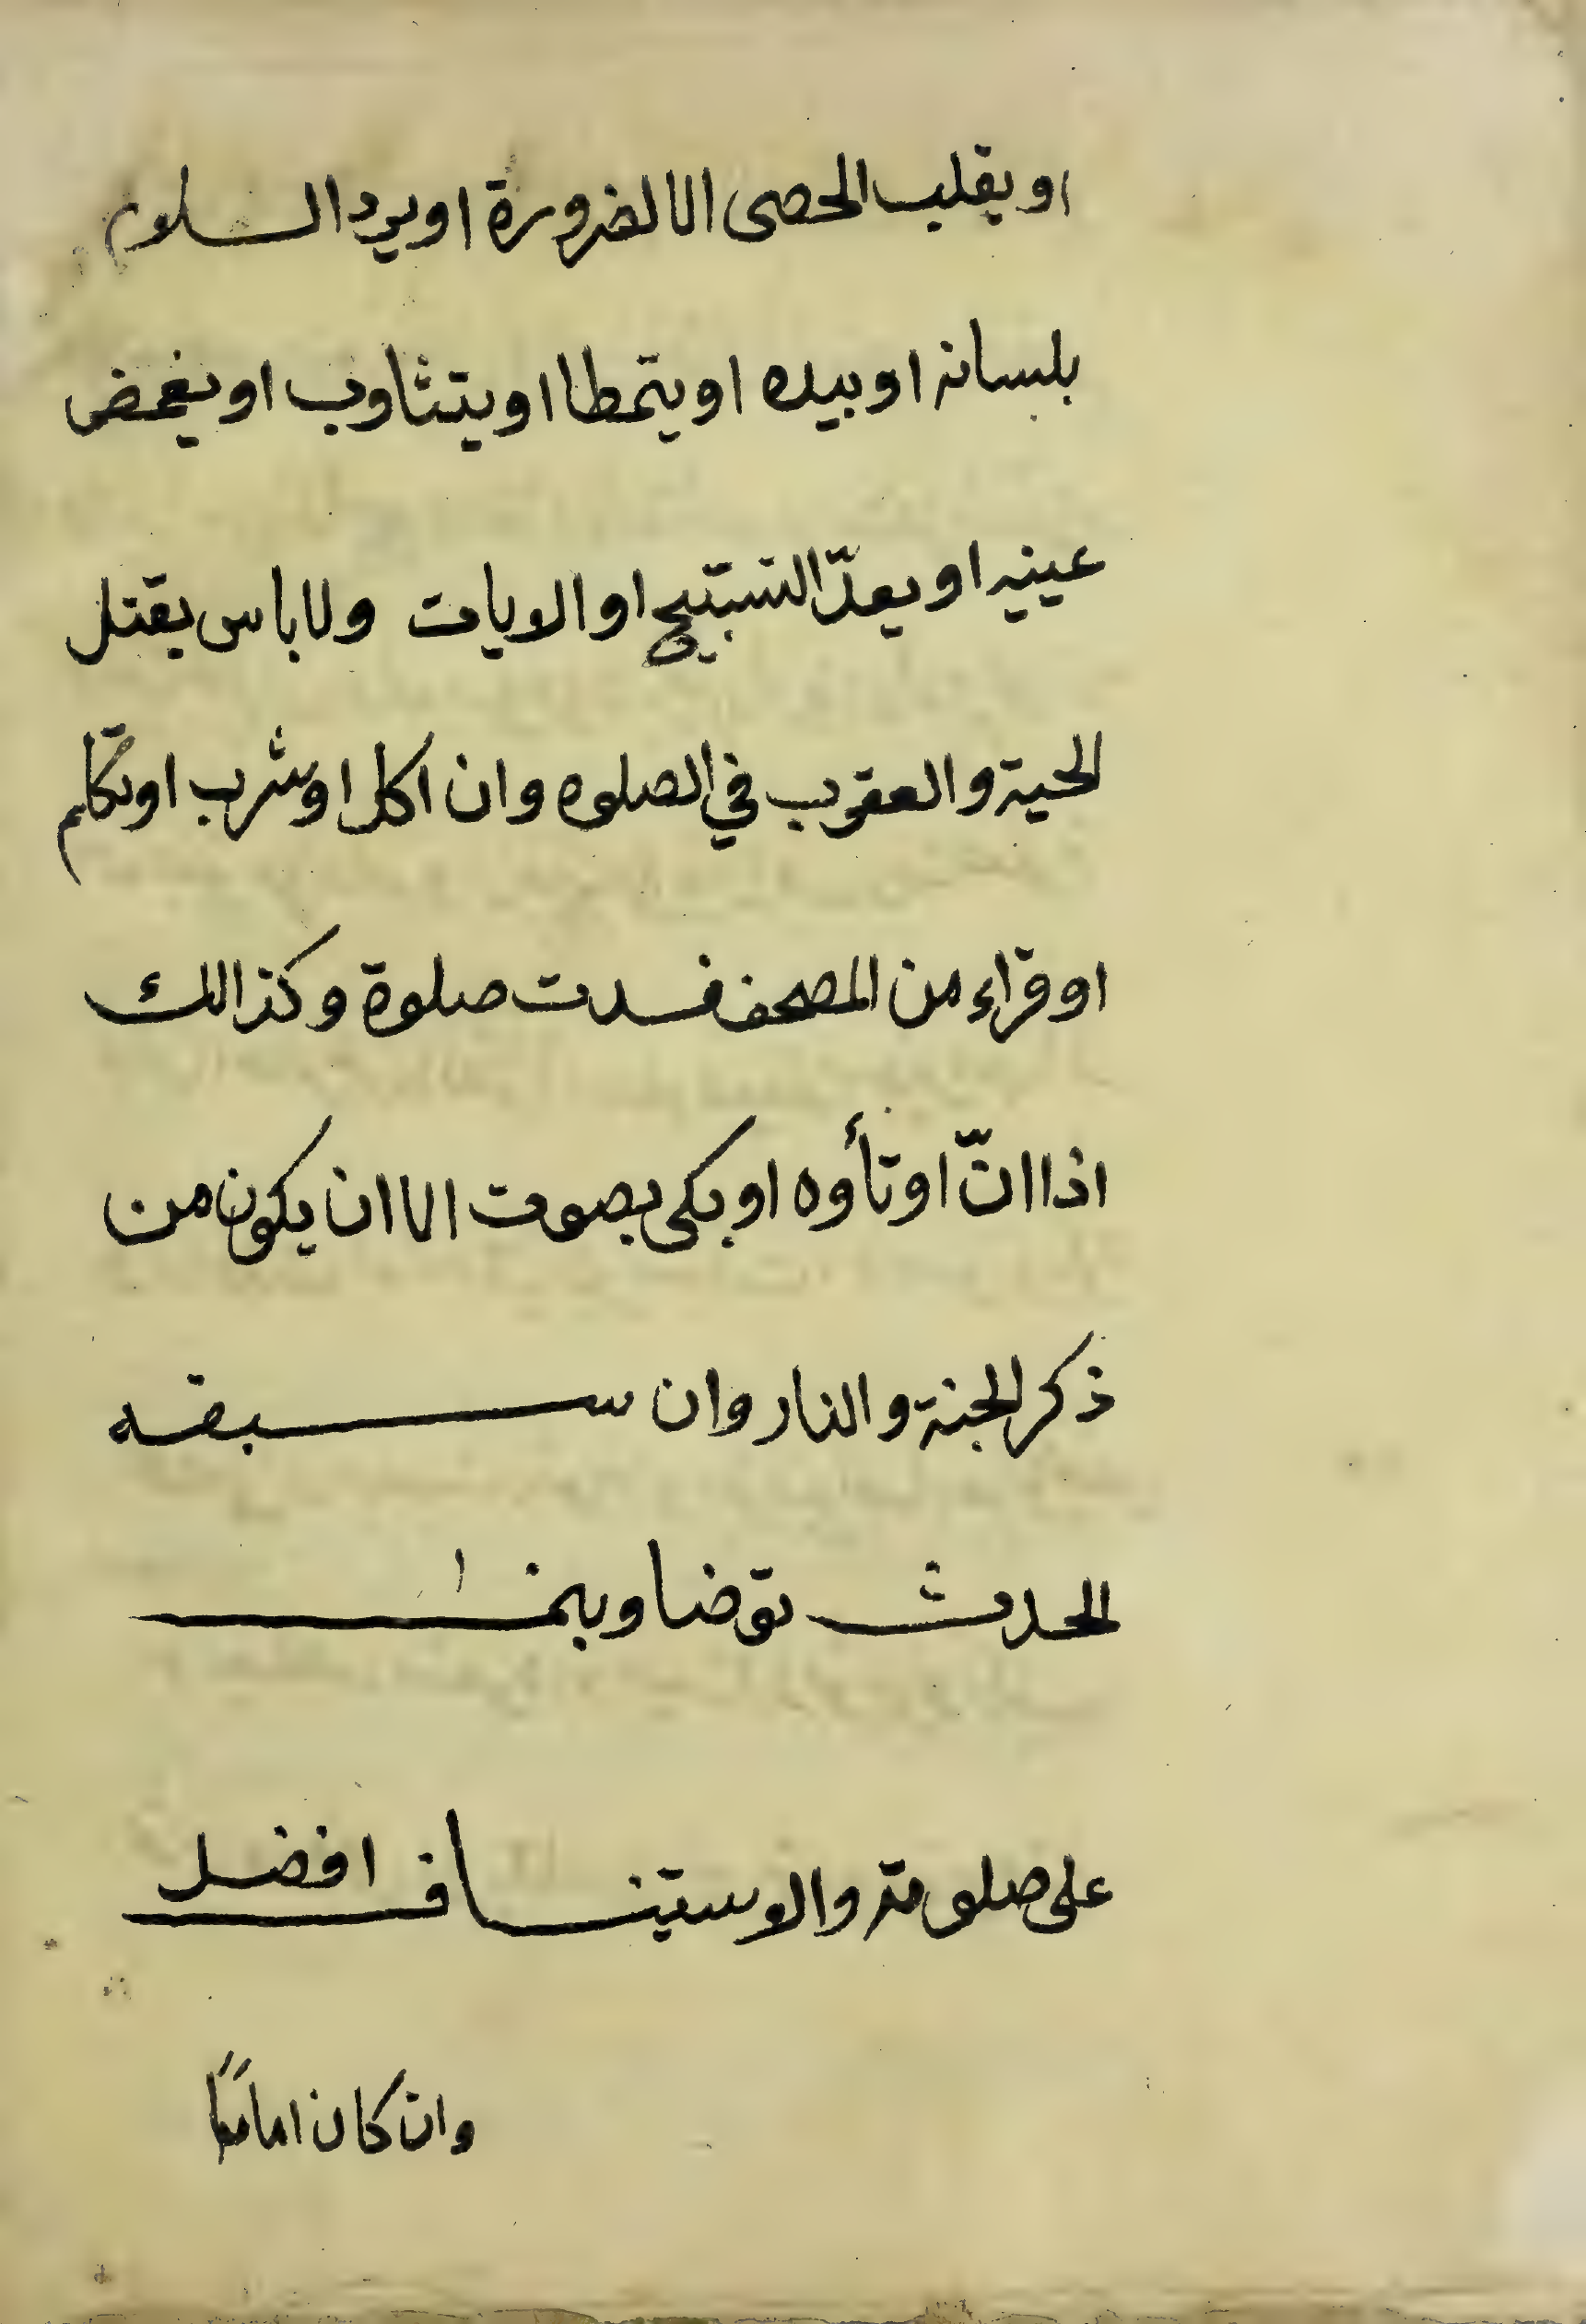 او يقلب الحصى الا لضرورة او يرد السلام
بلسانه او بيده او يتمطا او يتثاوب او يغمض
عينيه او يعدّ التسبيح او الايات ولا باس بقتل
الحية والعقرب في الصلوه وان اكل او شرب او تكلم
او قراء من المصحف فسدت صلوة وكذالك
اذا انّ او تأوه او بكى بصوت الا ان يكون من
ذكر الجنة والنار وان سبقه
الحدث توضا وبنى
على صلوته والاستيناف افضل
وان كان اماما